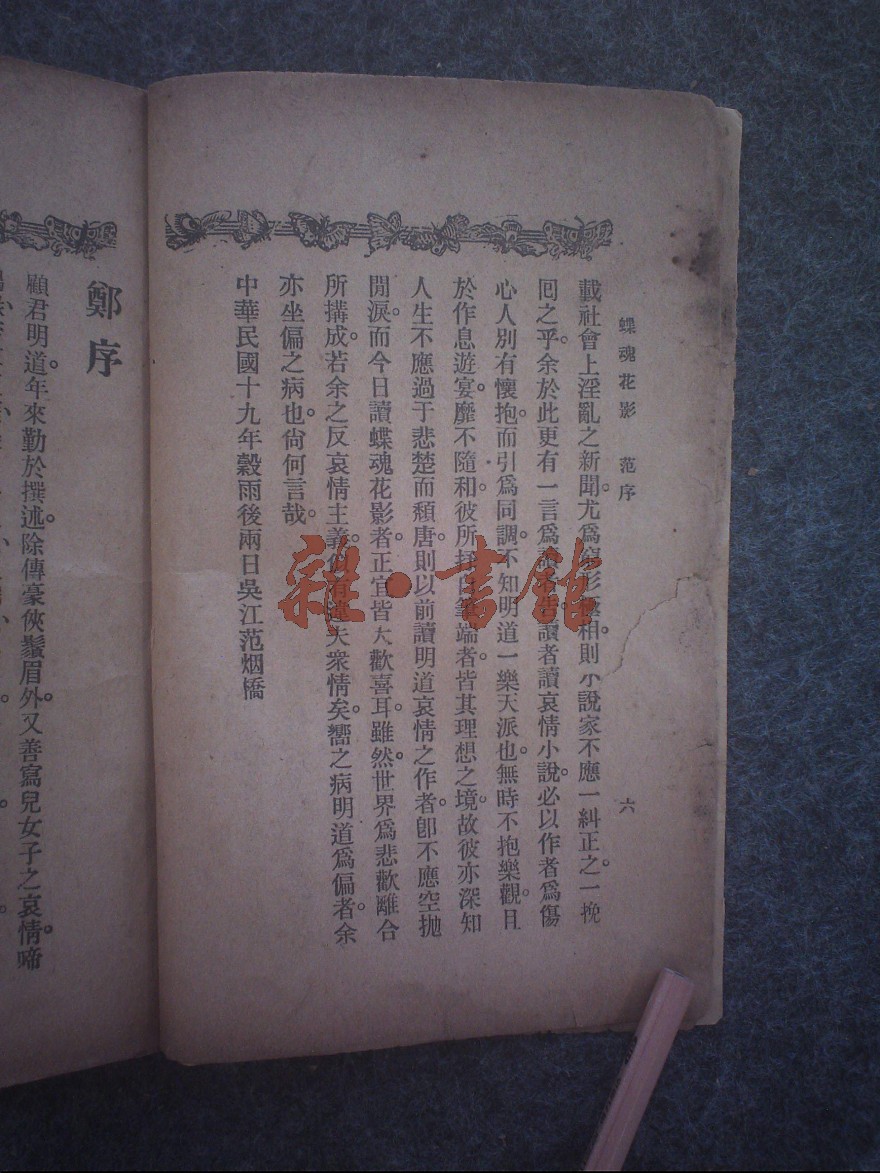 蝶魂花影　范序　六
載社會上淫亂之新聞。尤爲窮形極相。則小說家不應一糾正之。一挽
囘之乎。余於此更有一言爲讀者告。讀者讀哀情小說。必以作者爲傷
心人別有懷抱。而引爲同調。不知明道一樂天派也。無時不抱樂觀。且
於作息遊宴。靡不隨和。彼所抒自筆端者。皆其理想之境。故彼亦深知
人生不應過于悲楚而頹唐。則以前讀明道哀情之作者。卽不應空拋
閒淚。而今日讀蝶魂花影者。正宜皆大歡喜耳。雖然。世界爲悲歡離合
所搆成。若余之反哀情主義。似有違夫衆情矣。嚮之病明道爲偏者。余
亦坐偏之病也。尙何言哉。
中華民國十九年穀雨後兩日吳江范烟橋
鄭序
顧君明道。年來勤於撰述。除傳豪俠鬚眉外。又善寫兒女子之哀情。啼
雜·書館